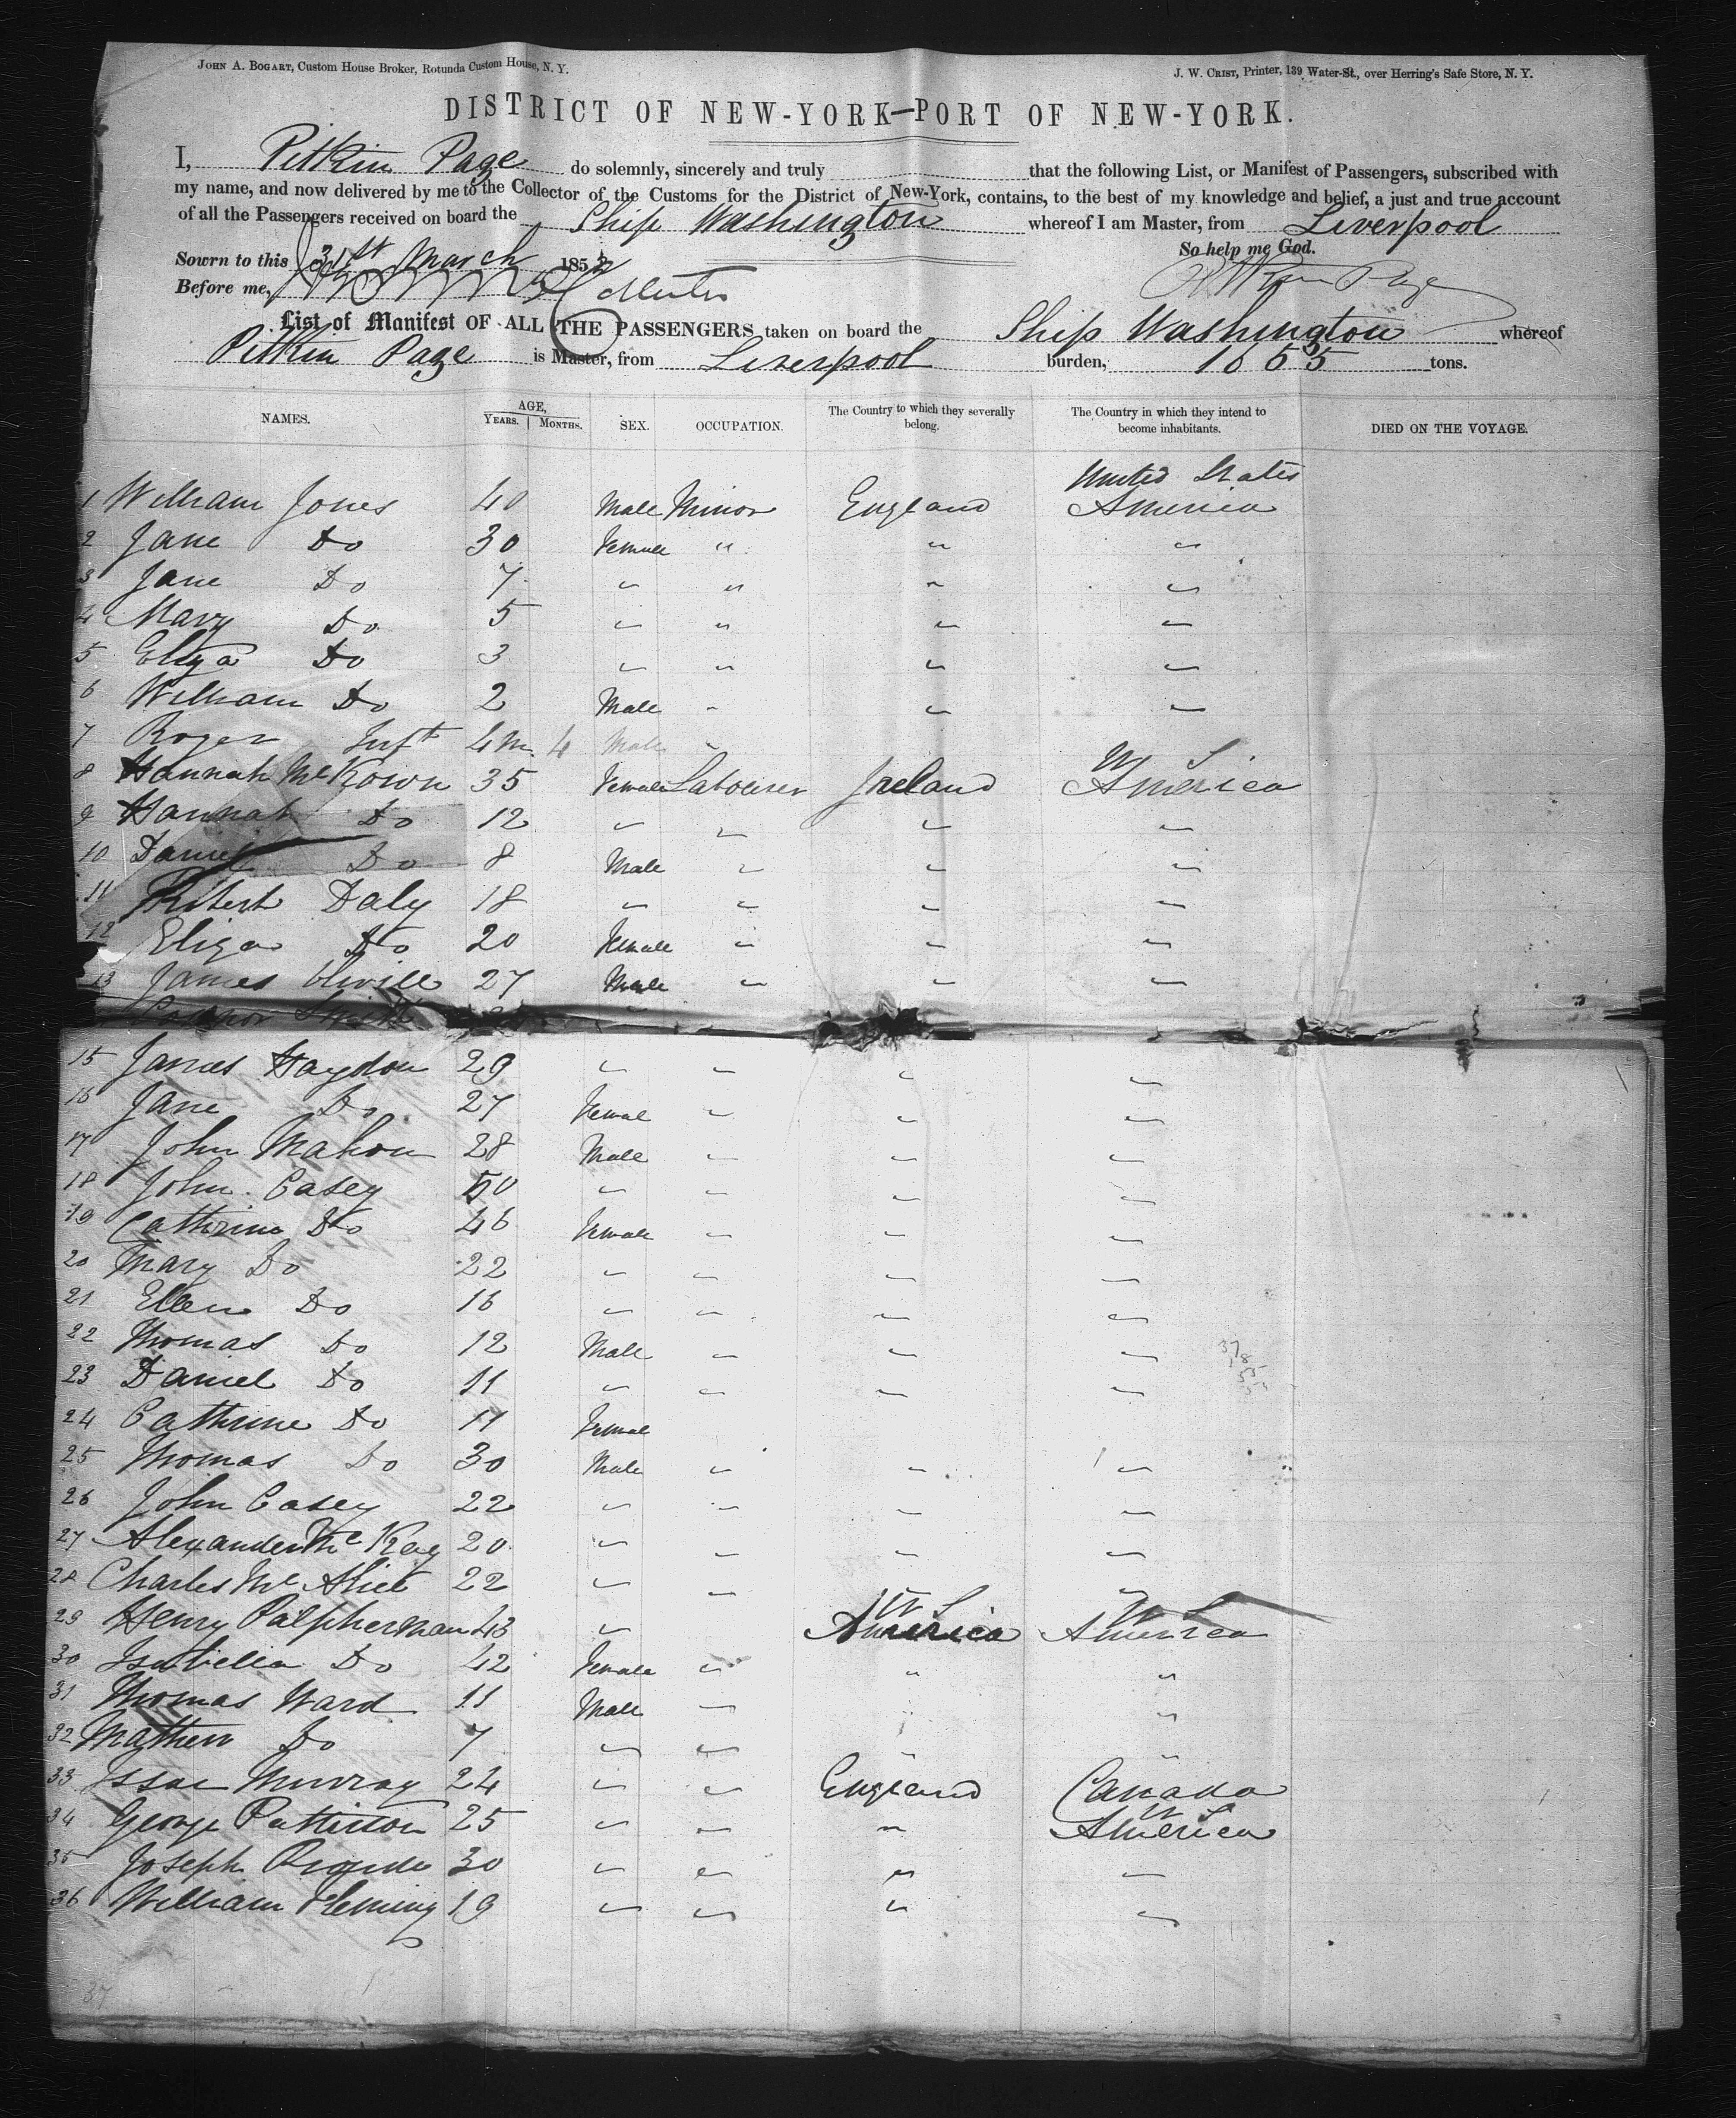 JOHN A. BOGART, Custom House Broker, Rotunda Custom House, N. Y.
J. W. CRIST, Printer, 139 Water-St., over Herring's Safe Store, N. Y.
DISTRICT OF NEW-YORK—PORT OF NEW-YORK.
I, Pitkin Page do solemnly, sincerely and truly that the following List, or Manifest of Passengers, subscribed with
my name, and now delivered by me to the Collector of the Customs for the District of New-York, contains, to the best of my knowledge and belief, a just and true account
of all the Passengers received on board the Ship Washington whereof I am Master, from Liverpool
So help me God.
Sowrn to this 31st March 185
Pitkin Page
Before me,
List of Manifest OF ALL THE PASSENGERS taken on board the Ship Washington whereof
Pitkin Page is Master, from Liverpool burden, 1655 tons.
NAMES. AGE, YEARS. MONTHS. SEX. OCCUPATION. The Country to which they severally belong. The Country in which they intend to become inhabitants. DIED ON THE VOYAGE.
United States
1 William Jones 40 Male Minor England America
2 Jane Do 30 Female " " "
3 Jane Do 7 " " " "
4 Mary Do 5 " " " "
5 Eliza Do 3 " " " "
6 William Do 2 Male " " "
7 Roger Inft 4m 4 Male "
U S
8 Hannah McKown 35 Female Labourer Ireland America
9 Hannah Do 12 " " " "
10 Daniel Do 8 Male " " "
11 Robert Daly 18 " " " "
12 Eliza Do 20 Female " " "
13 James 27 Male " " "
Smith
15 James Haydon 29 " " " "
16 Jane Do 27 Femal " " "
17 John Mahon 28 Male " " "
18 John Casey 50 " " " "
19 Cathrine Do 46 Female " " "
20 Mary Do 22 " " " "
21 Ellen Do 16 " " " "
22 Thomas Do 12 Male " " "
23 Daniel Do 11 " " " "
24 Cathrine Do 11 Femal
25 Thomas Do 30 Male " " "
26 John Casey 22 " " " "
27 Alexander Mc Kay 20 " " " "
28 Charles Mc 22 " " "
U S U S
29 Henry Palpherman 43 " America America
30 Isabella Do 42 Female " " "
31 Thomas Ward 11 Male " " "
32 Mathew Do 7 " " " "
33 Issac Murray 24 " " England Canada
U S
34 George Pattison 25 " " " America
35 Joseph 30 " " " "
36 William Fleming 19 " " " "
37